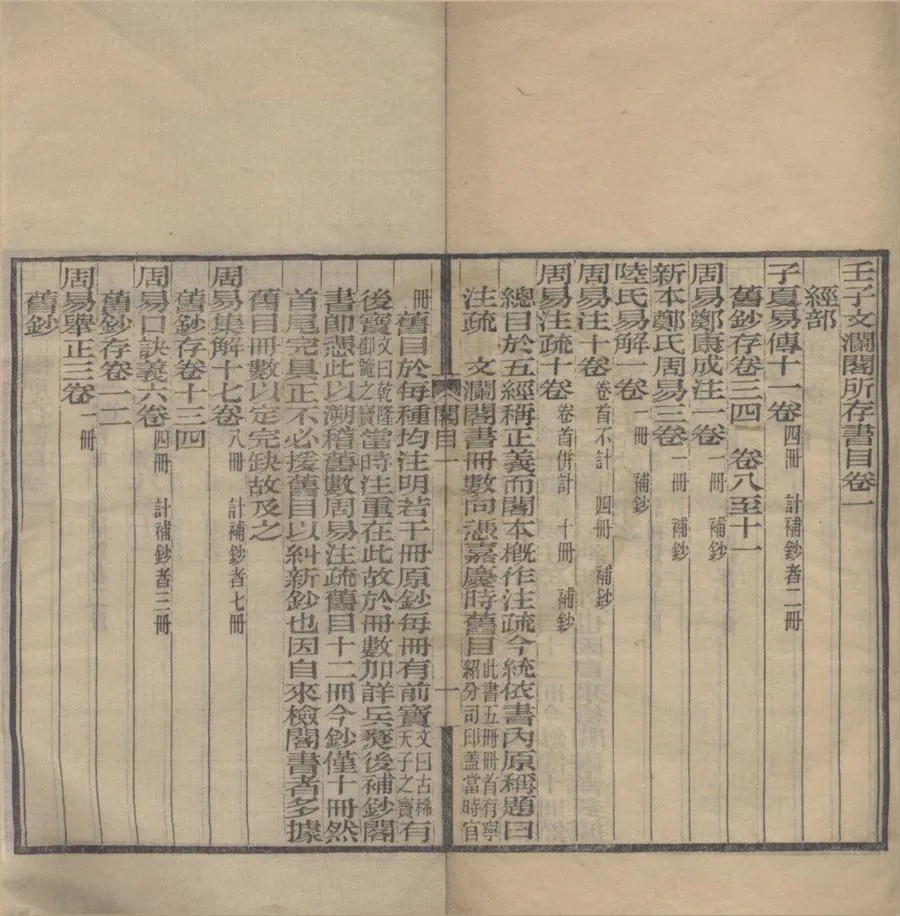 壬子文瀾閣所存書目卷一
經部
子夏易傳十一卷 四冊 計補鈔者二冊
舊鈔存卷三四 卷八至十一
周易鄭康成注一卷 一冊 補鈔
新本鄭氏周易三卷 一冊 補鈔
陸氏易解一卷 一冊 補鈔
周易注十卷 卷首不計 四冊 補鈔
周易注疏十卷 卷首併計 十冊 補鈔
總目於五經稱正義而閣本概作注疏今統依書內原稱題曰
注疏 文瀾閣書冊數向憑嘉慶時舊目 此書五冊冊首有寧
紹分司印蓋當時官
閣目一 一
冊 舊目於每種均注明若干冊原鈔每冊有前寶 文曰古稀
天子之寶 有
後寶 文曰乾隆
御覽之寶 當時注重在此故於冊數加詳兵燹後補鈔閣
書即憑此以溯稽舊數周易注疏舊目十二冊今鈔僅十冊然
首尾完具正不必援舊目以糾新鈔也因自來檢閣書者多據
舊目冊數以定完缺故及之
周易集解十七卷 八冊 計補鈔者七冊
舊鈔存卷十三四
周易口訣義六卷 四冊 計補鈔者三冊
舊鈔存卷一二
周易舉正三卷 一冊
舊鈔